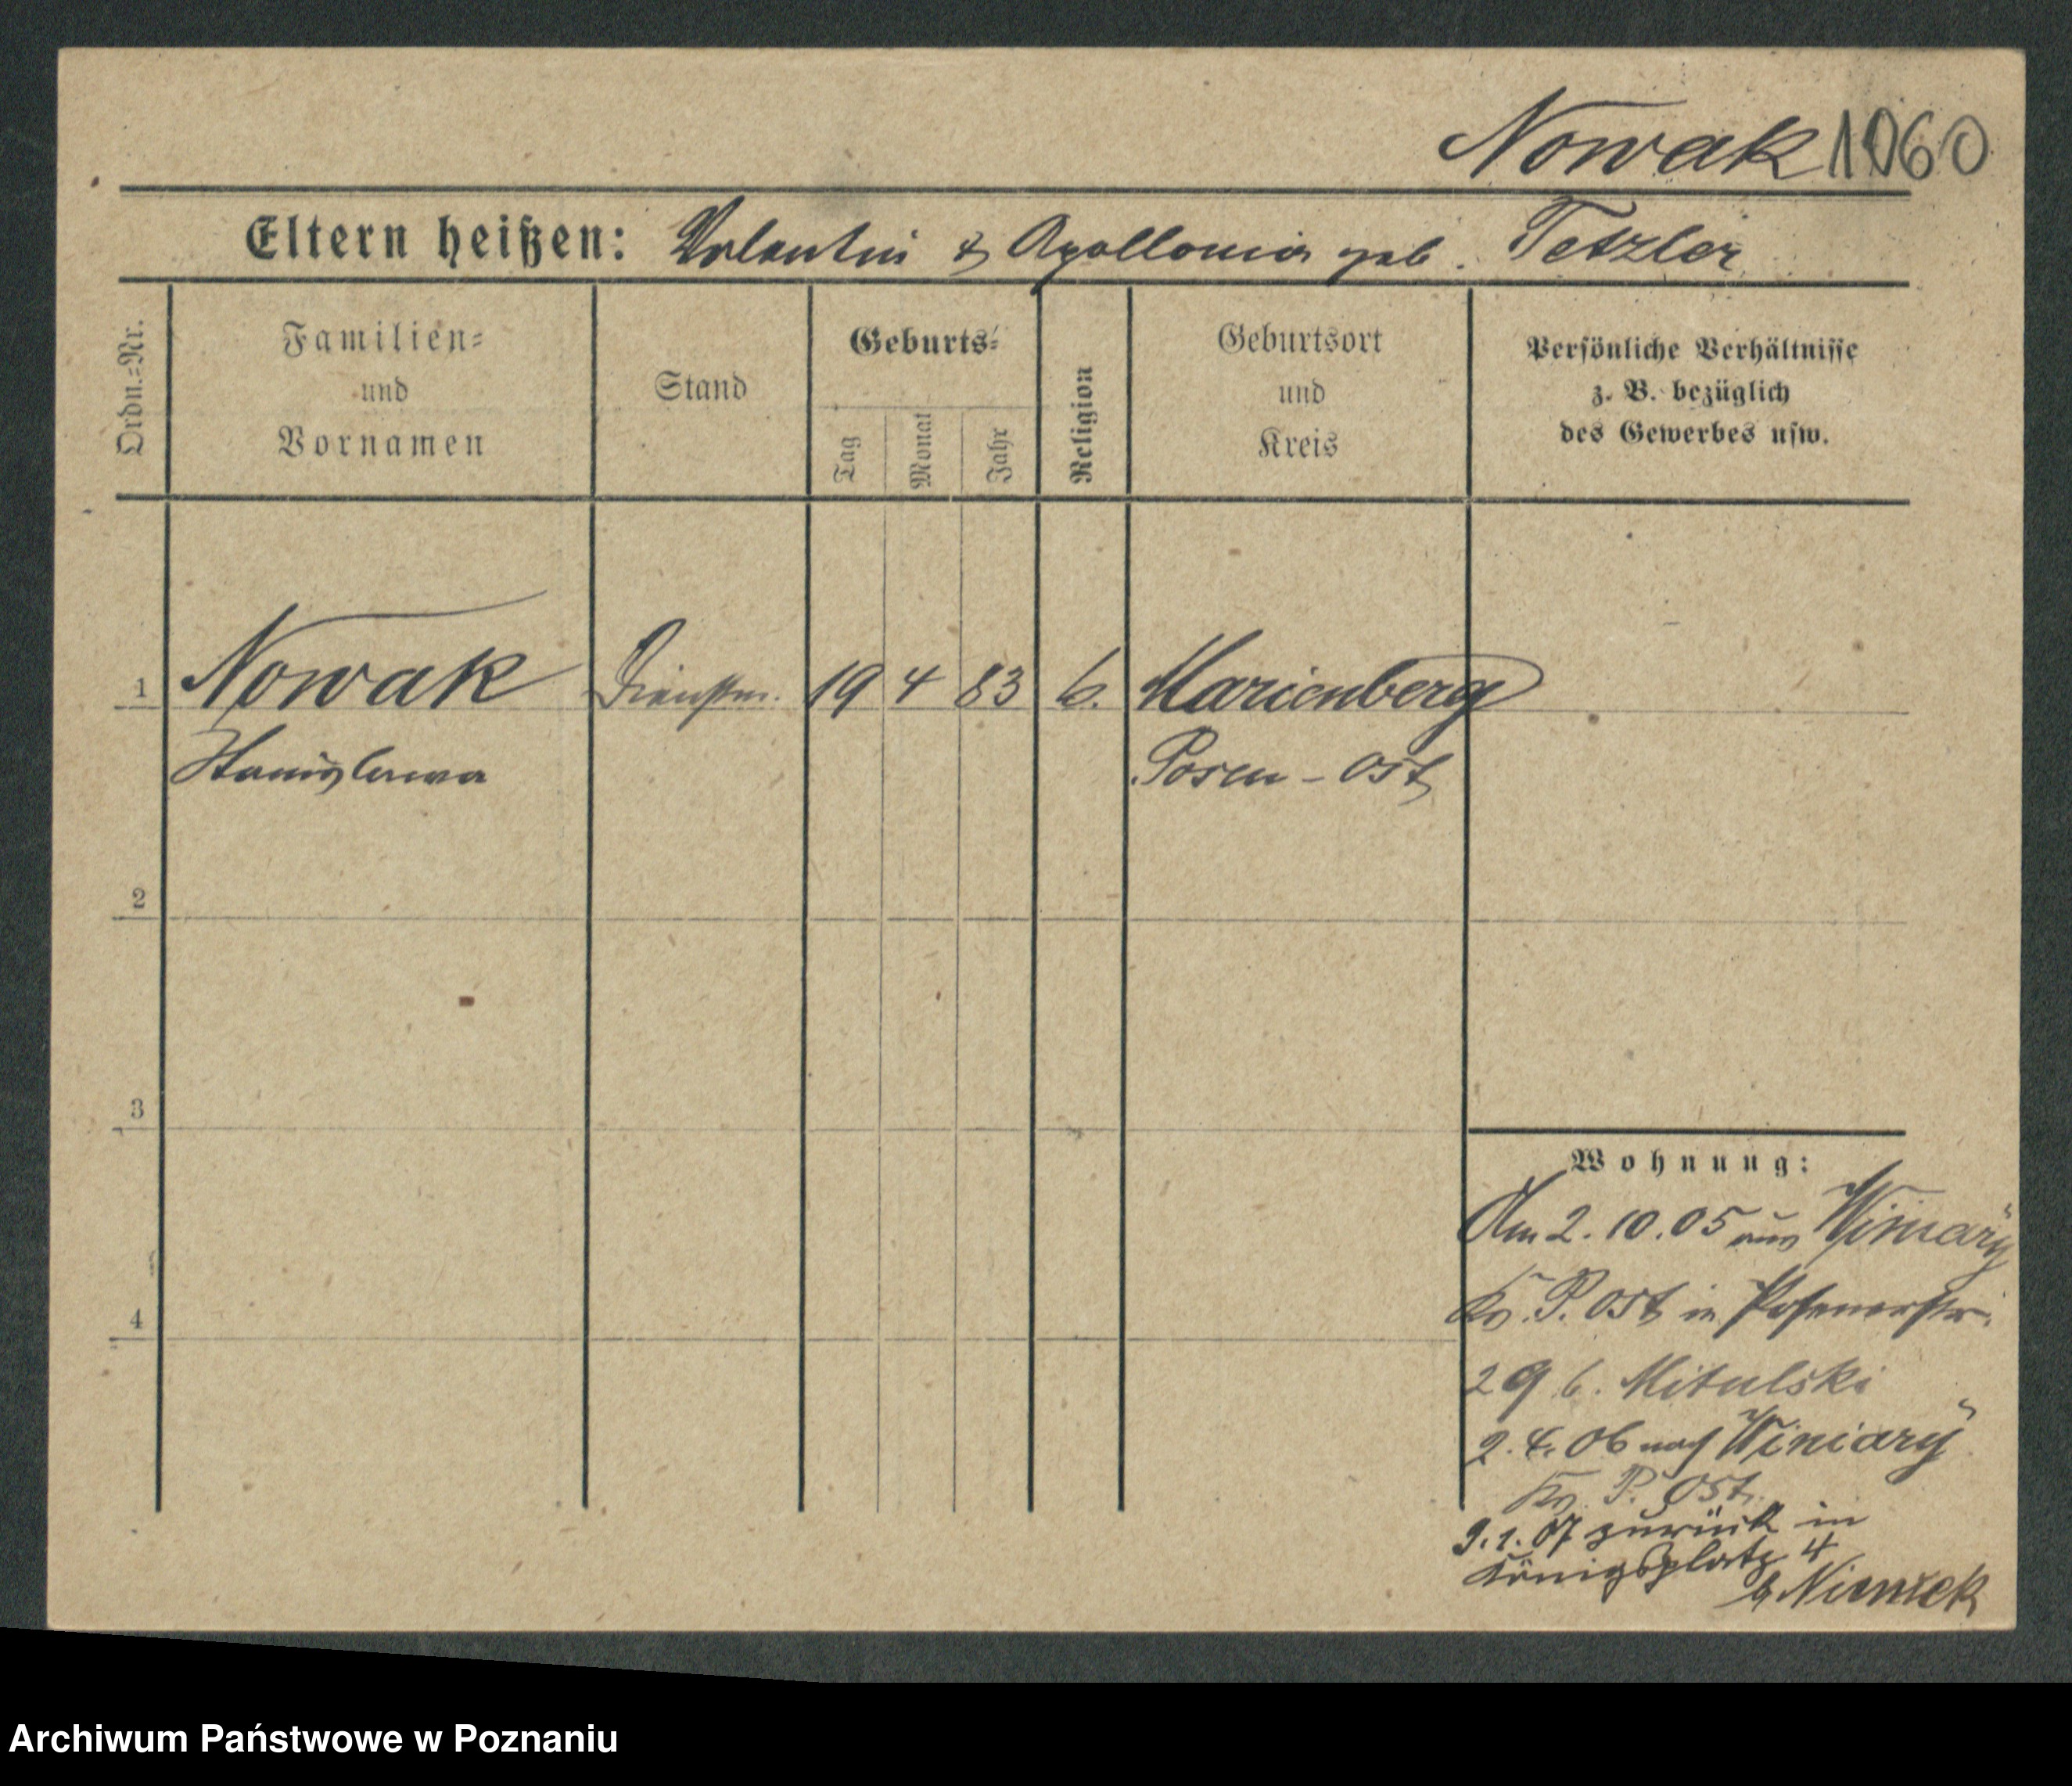 Nowak 1060
Eltern heißen: Valentin & Apollonia geb. Tetzler
Ordn.=Nr.
Familien=
und
Vornamen
Stand
Geburts=
Tag
Monat
Jahr
Religion
Geburtsort
und
Kreis
Persönliche Verhältnisse
z. B. bezüglich
des Gewerbes usw.
1 Nowak Dienstm. 19 4 83 k. Marienberg
Stanislawa Posen - Ost
2
3
4
Wohnung:
Am 2. 10. 05 aus Winiary
Kr. P. Ost in Posenerstr.
29 b. Mitulski
2. 4. 06 nach Winiary
Kr. P. Ost.
9. 1. 07 zurück in
Königsplatz 4
b
Archiwum Państwowe w Poznaniu